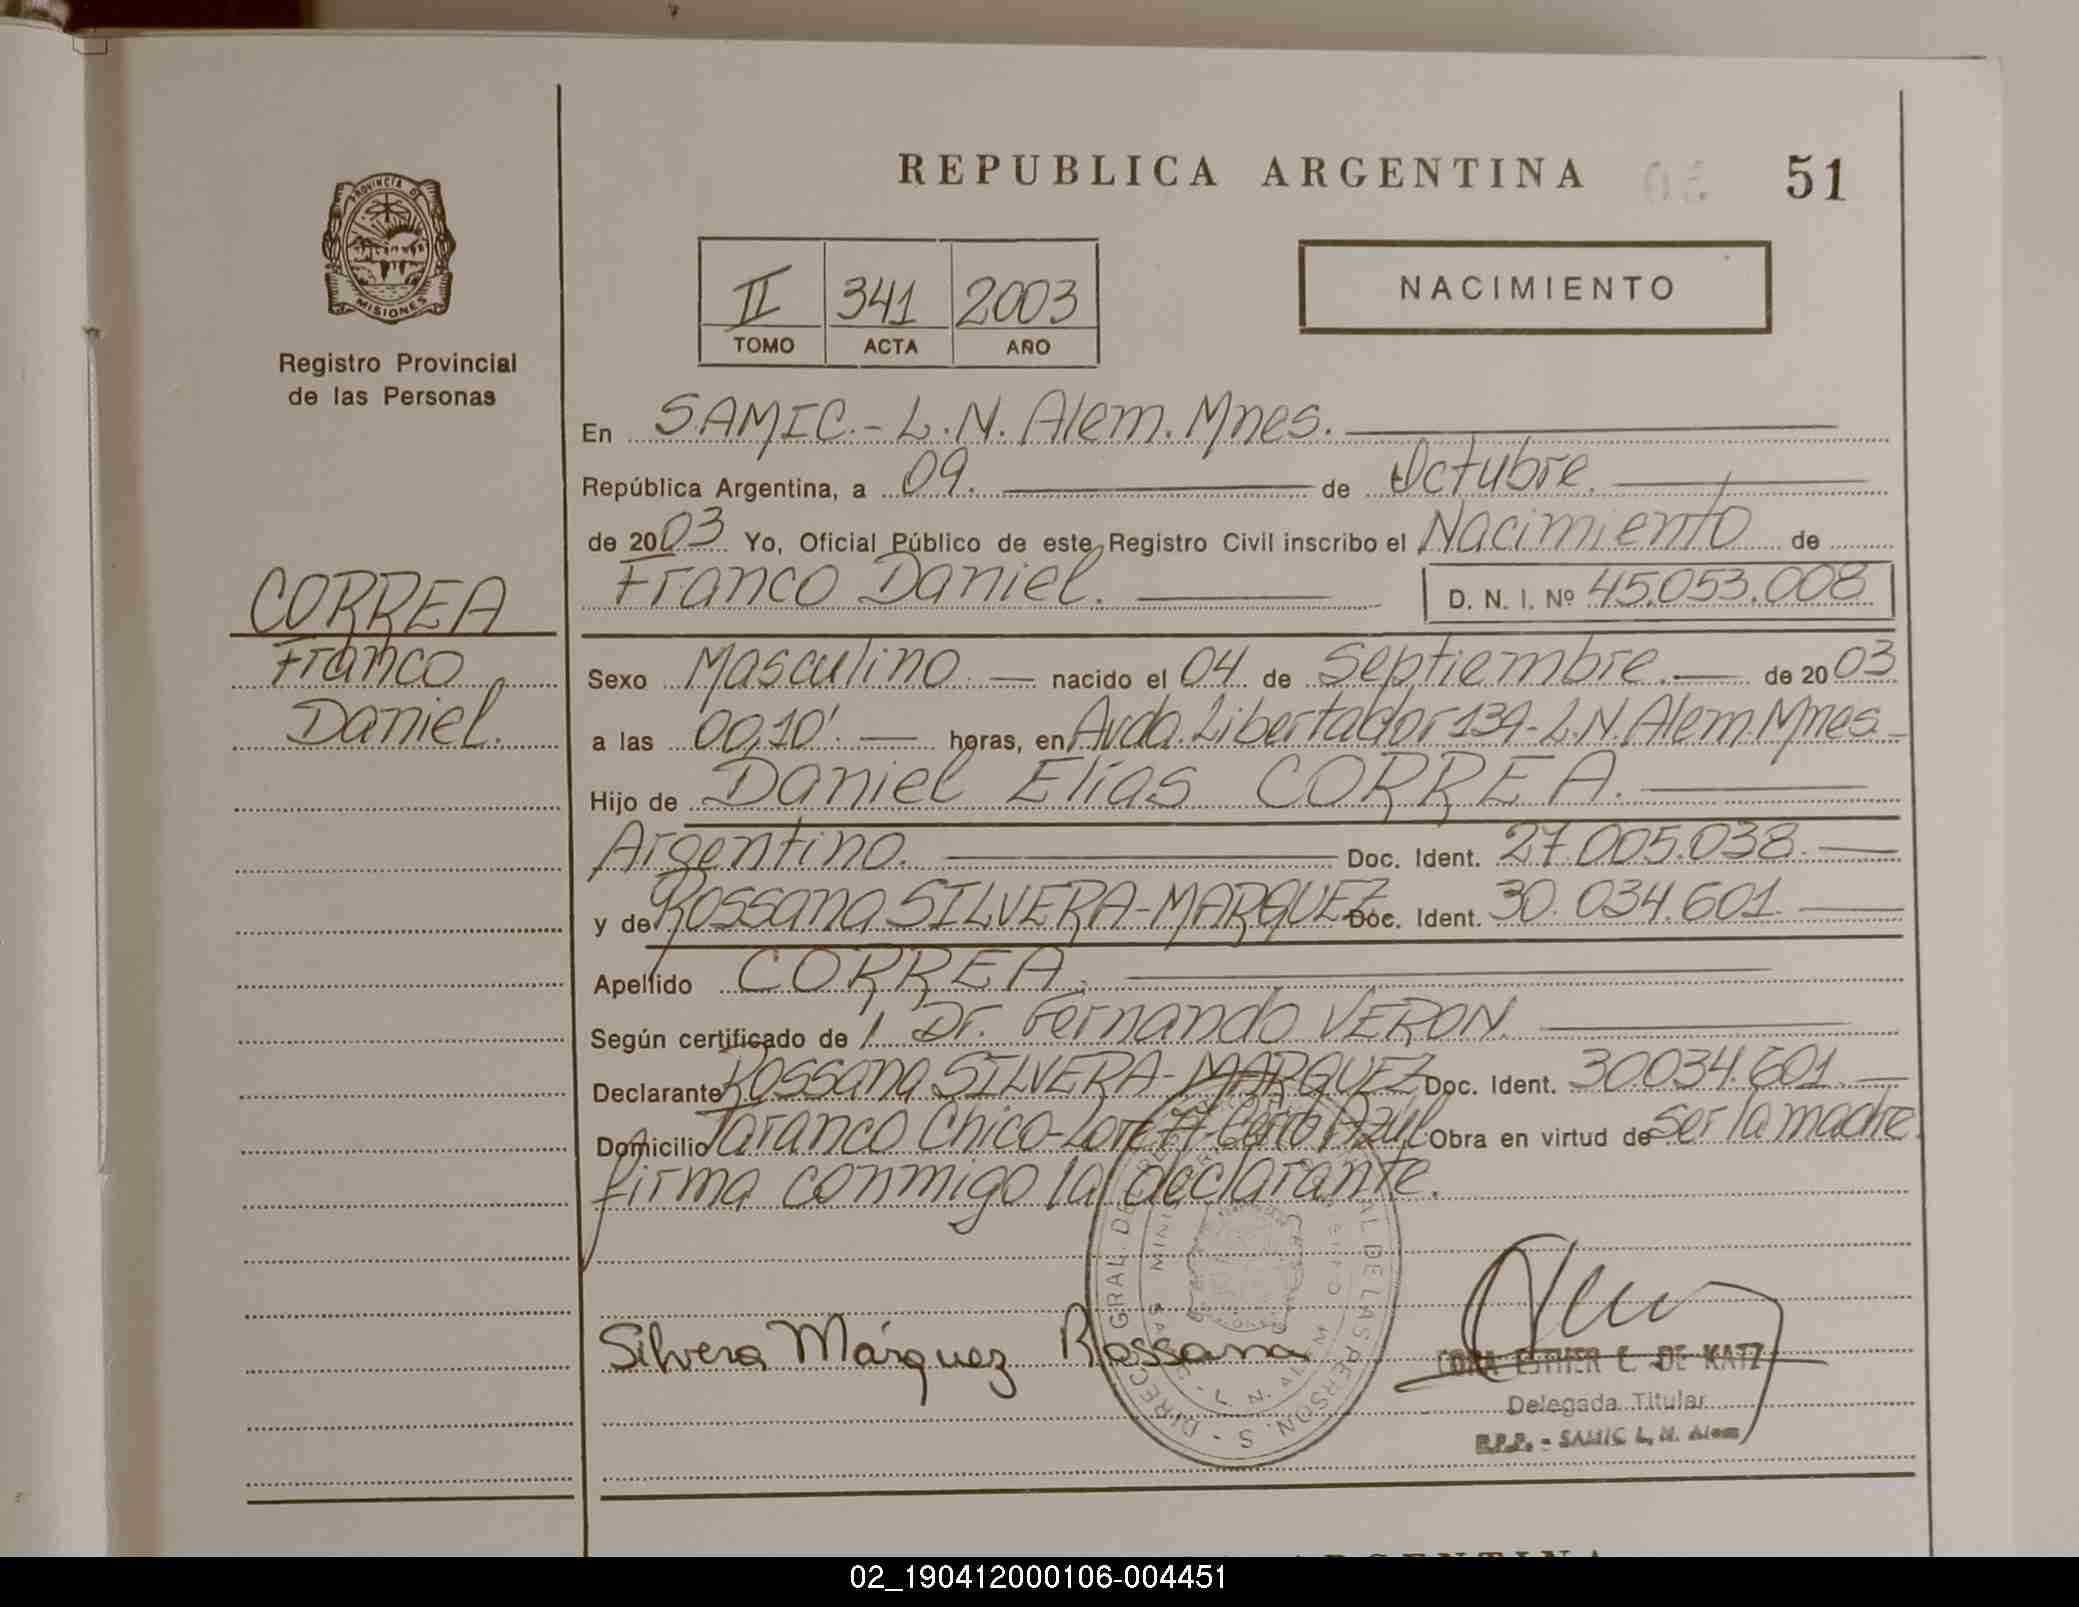 REPUBLICA ARGENTINA 51
PROVINCIA DE MISIONES
Registro Provincial
de las Personas
II 341 2003
TOMO ACTA AÑO
NACIMIENTO
En SAMIC.- L.N. Alem. Mnes.
República Argentina, a 09. de Octubre.
de 2003 Yo, Oficial Público de este Registro Civil inscribo el Nacimiento de
Franco Daniel. D. N. I. Nº 45.053.008
CORREA
Franco
Daniel.
Sexo Masculino. nacido el 04 de Septiembre. de 2003
a las 00,10'. horas, en Avda. Libertador 139- L.N. Alem. Mnes.
Hijo de Daniel Elías CORREA.
Argentino. Doc. Ident. 27.005.038.
y de Rossana SILVERA-MARQUEZ Doc. Ident. 30.034.601.
Apellido CORREA.
Según certificado de Dr. Fernando VERON.
Declarante Rossana SILVERA-MARQUEZ Doc. Ident. 30034.601.
Domicilio Taranco Chico- Cerro Azul Obra en virtud de ser la madre.
firma conmigo la declarante.
Silvera Márquez Rossana
ESTHER C. DE KATZ
Delegada Titular
R.P.P. - SAMIC L. N. Alem
ARGENTINA
02_190412000106-004451